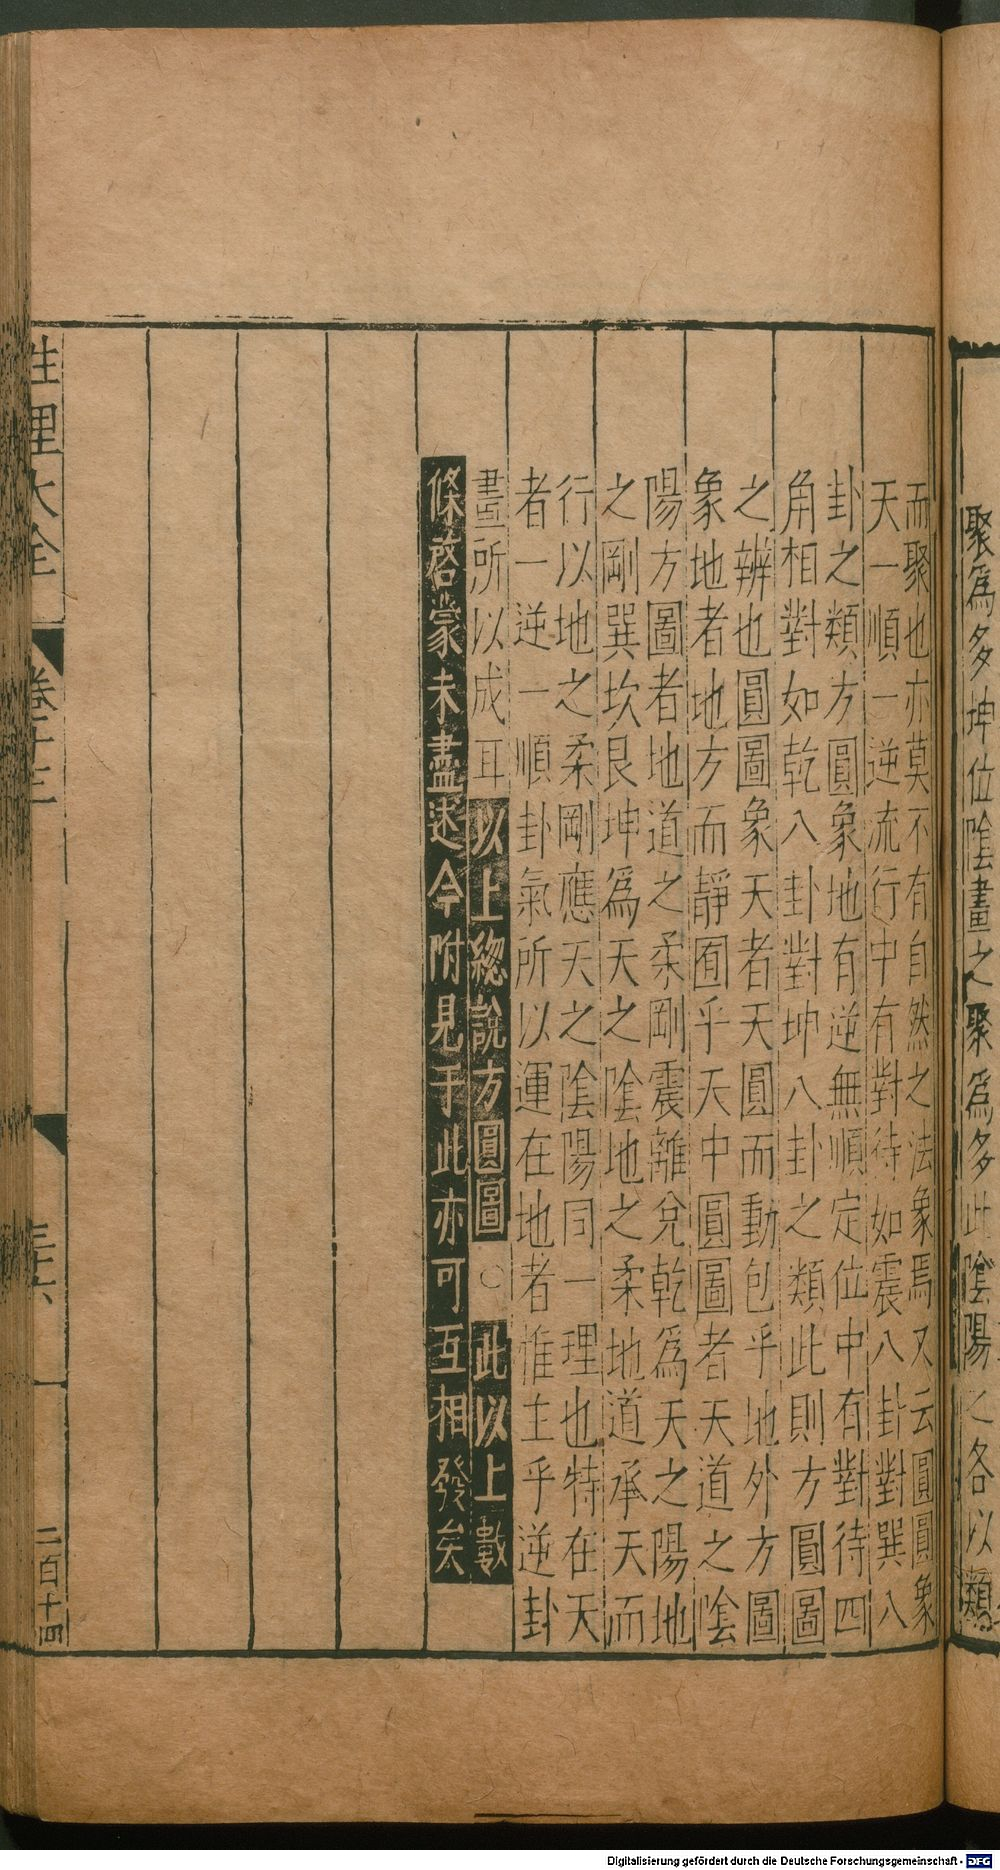 聚爲多坤位陰畫之聚爲多此陰陽之各以類
而聚也亦莫不有自然之法象焉又云圓圖象
天一順一逆流行中有對待如震八卦對巽八
卦之類方圖象地有逆無順定位中有對待四
角相對如乾八卦對坤八卦之類此則方圓圖
之辨也圓圖象天者天圓而動包乎地外方圖
象地者地方而靜囿乎天中圓圖者天道之陰
陽方圖者地道之柔剛震離兌乾爲天之陽地
之剛巽坎艮坤爲天之陰地之柔地道承天而
行以地之柔剛應天之陰陽同一理也特在天
者一逆一順卦氣所以運在地者惟主乎逆卦
畫所以成耳以上緫說方圓圖○此以上數
條啓蒙未盡述今附見于此亦可互相發矣
性理大全
卷十三
三六
二百十四
Digitalisierung gefördert durch die Deutsche Forschungsgemeinschaft - DFG